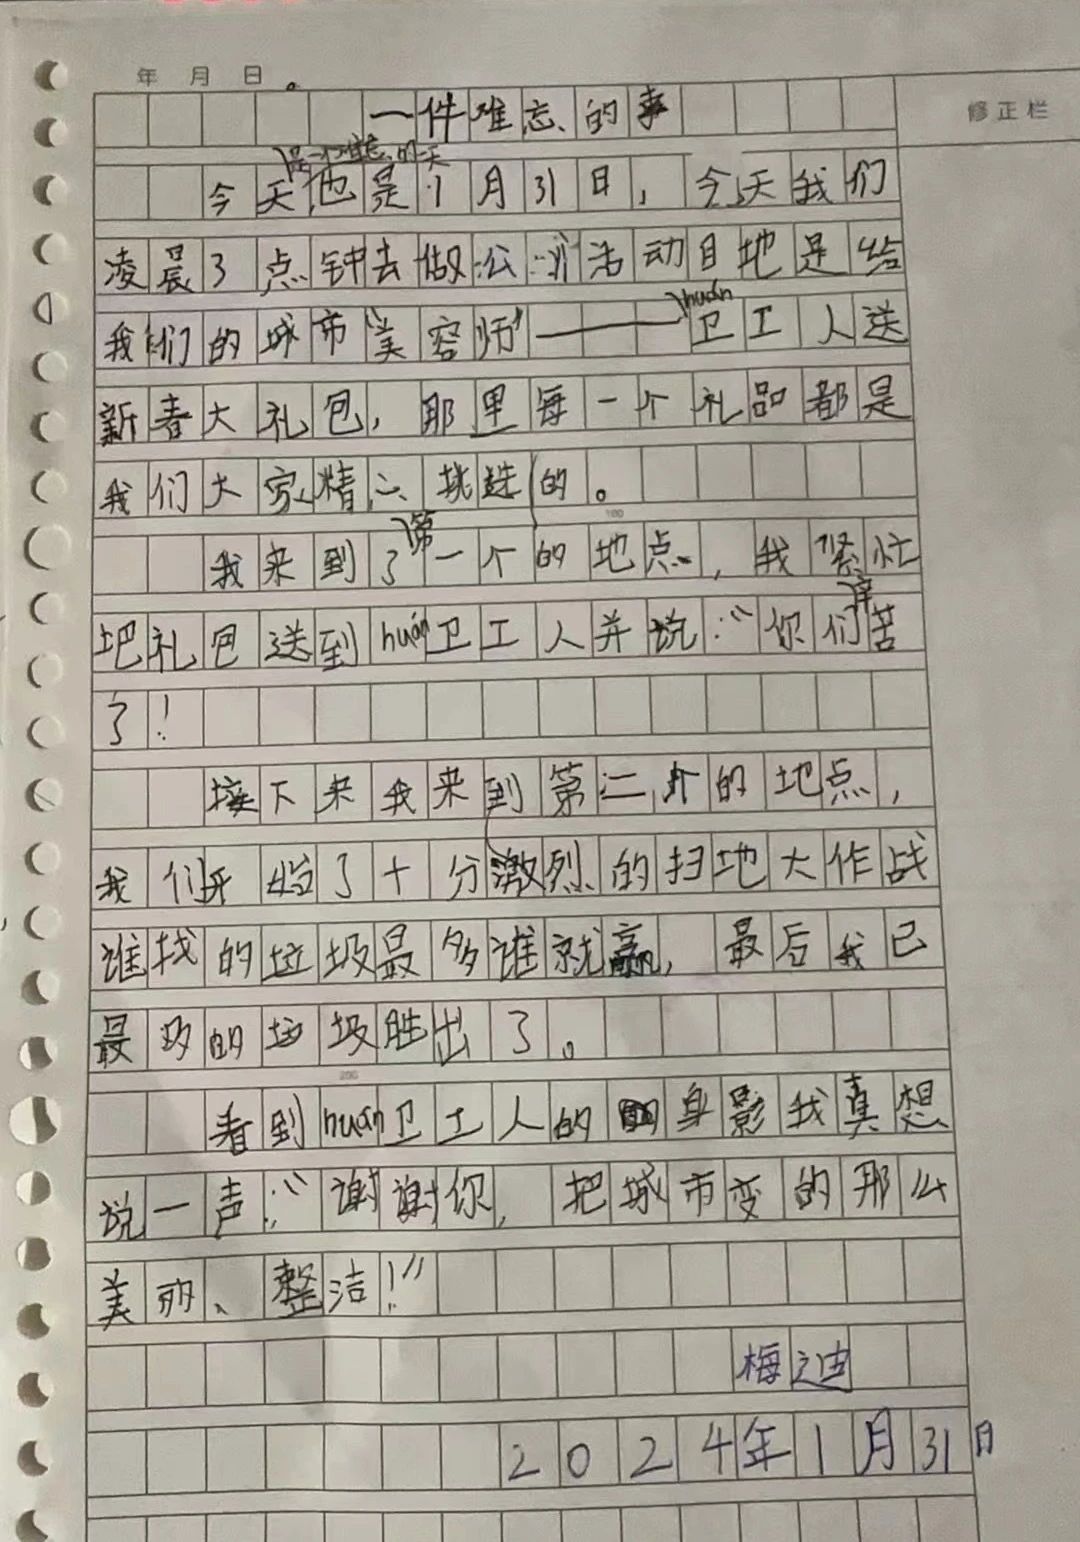 年 月 日
修正栏
一件难忘的事
今天是一个难忘的一天,也是1月31日,今天我们
凌晨3点钟去做公益活动目地是给
我们的城市“美容师”——huán卫工人送
新春大礼包,那里每一个礼品都是
我们大家精心挑选的。
100
我来到了第一个的地点,我紧忙
把礼包送到huán卫工人并说:“你们辛苦
了!
接下来我来到第二个的地点,
我们开始了十分激烈的扫地大作战
谁找的垃圾最多谁就赢,最后我已
最多的垃圾胜出了。
200
看到huán卫工人的身影我真想
说一声:“谢谢你,把城市变的那么
美丽、整洁!”
梅迪
2024年1月31日